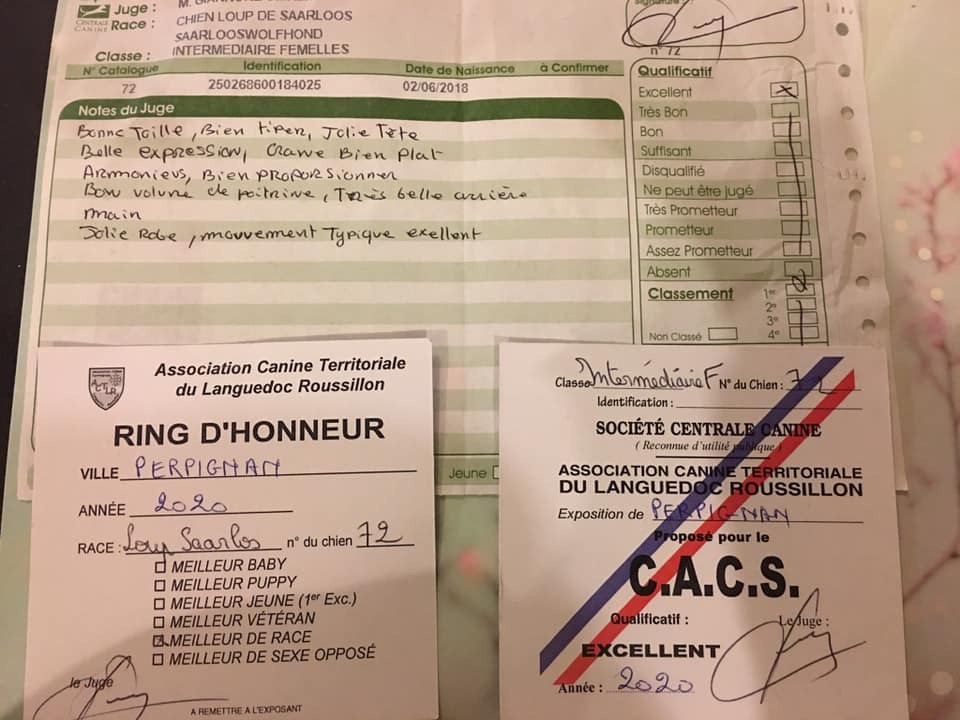 Juge :
CENTRALE
CANINE
Race :
CHIEN LOUP DE SAARLOOS
SAARLOOSWOLFHOND
Classe :
INTERMEDIAIRE FEMELLES
n° 72
N° Catalogue Identification Date de Naissance à Confirmer
72 250268600184025 02/06/2018
Notes du Juge
Bonne Taille, Bien tiper, Jolie Tête
Belle expression, Crane Bien plat
Armonieus, Bien proporsionner
Bon volume de poitrine, Très belle arrière
main
Jolie Robe, mouvement Typique exellent
Qualificatif
Excellent
Très Bon
Bon
Suffisant
Disqualifié
Ne peut être jugé
Très Prometteur
Prometteur
Assez Prometteur
Absent
Classement 1er
2e
3e
Non Classé 4e
Jeune
Association Canine Territoriale
du Languedoc Roussillon
RING D'HONNEUR
VILLE PERPIGNAN
ANNÉE 2020
RACE : Loup Saarlos n° du chien 72
MEILLEUR BABY
MEILLEUR PUPPY
MEILLEUR JEUNE (1er Exc.)
MEILLEUR VÉTÉRAN
MEILLEUR DE RACE
MEILLEUR DE SEXE OPPOSÉ
le Juge
A REMETTRE A L'EXPOSANT
Classe Intermédiaire F N° du Chien : 72
Identification :
SOCIÉTÉ CENTRALE CANINE
( Reconnue d'utilité publique )
ASSOCIATION CANINE TERRITORIALE
DU LANGUEDOC ROUSSILLON
Exposition de PERPIGNAN
Proposé pour le
C.A.C.S.
Qualificatif : Le Juge :
EXCELLENT
Année : 2020